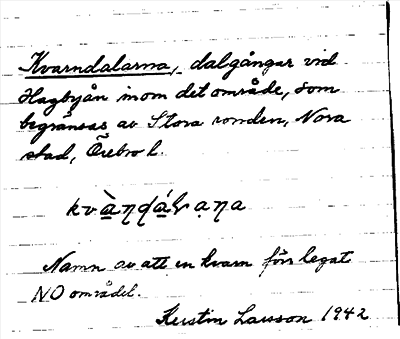 Kvarndalarna, dalgångar vid
Hagbyån inom det område, som
begränsas av Stora ronden, Nora
stad, Örebro l.
kvàṇḍá ṛạṇa
Namn av att en kvarn förr legat
NO området.
Kerstin Larsson 1942